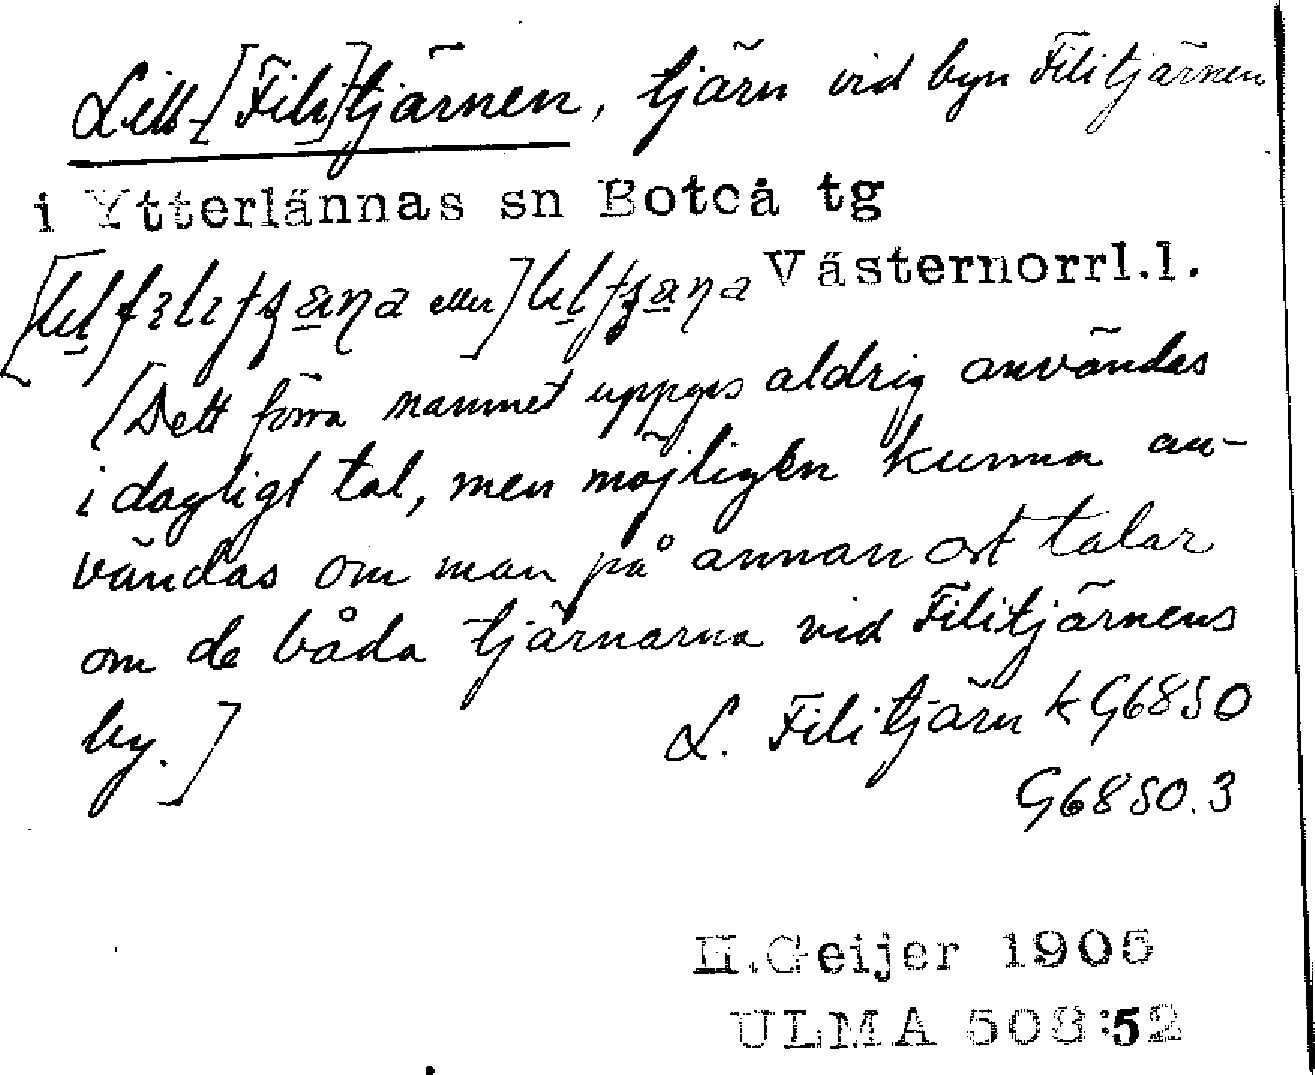 Lill-[Fili]tjärnen, tjärn vid byn Filitjärnen
i Ytterlännas sn Boteå tg
Västernorrl.l.
eller
[Dett förra namnet uppges aldrig användas
i dagligt tal, men möjligen kunna an-
vändas om man på annan ort talar
om de båda tjärnarna vid Filitjärnens
by.]
L. Filitjärn k G6850
G6850.3
H.Geijer 1905
ULMA 508:52